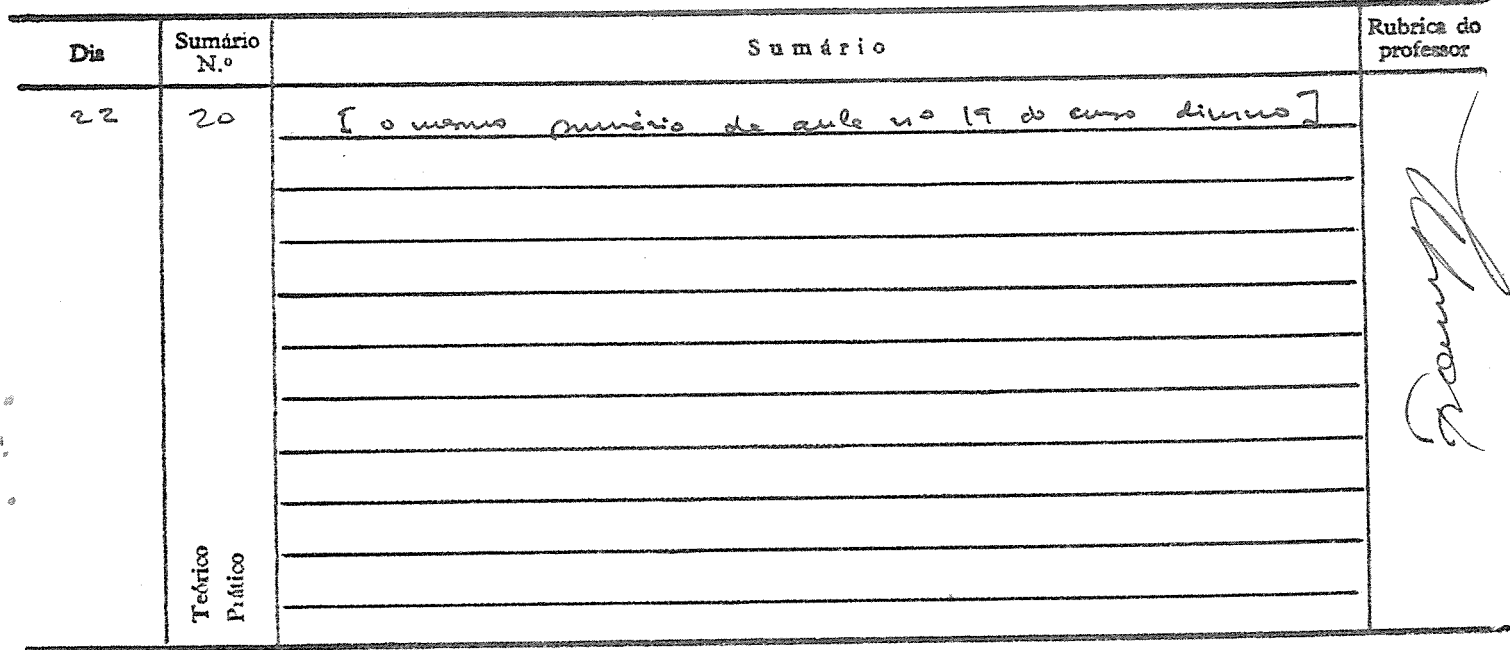 Dia
Sumário N.º
Sumário
Rubrica do professor
22
20
[o mesmo sumário da aula nº 19 do curso diurno]
Teórico
Prático